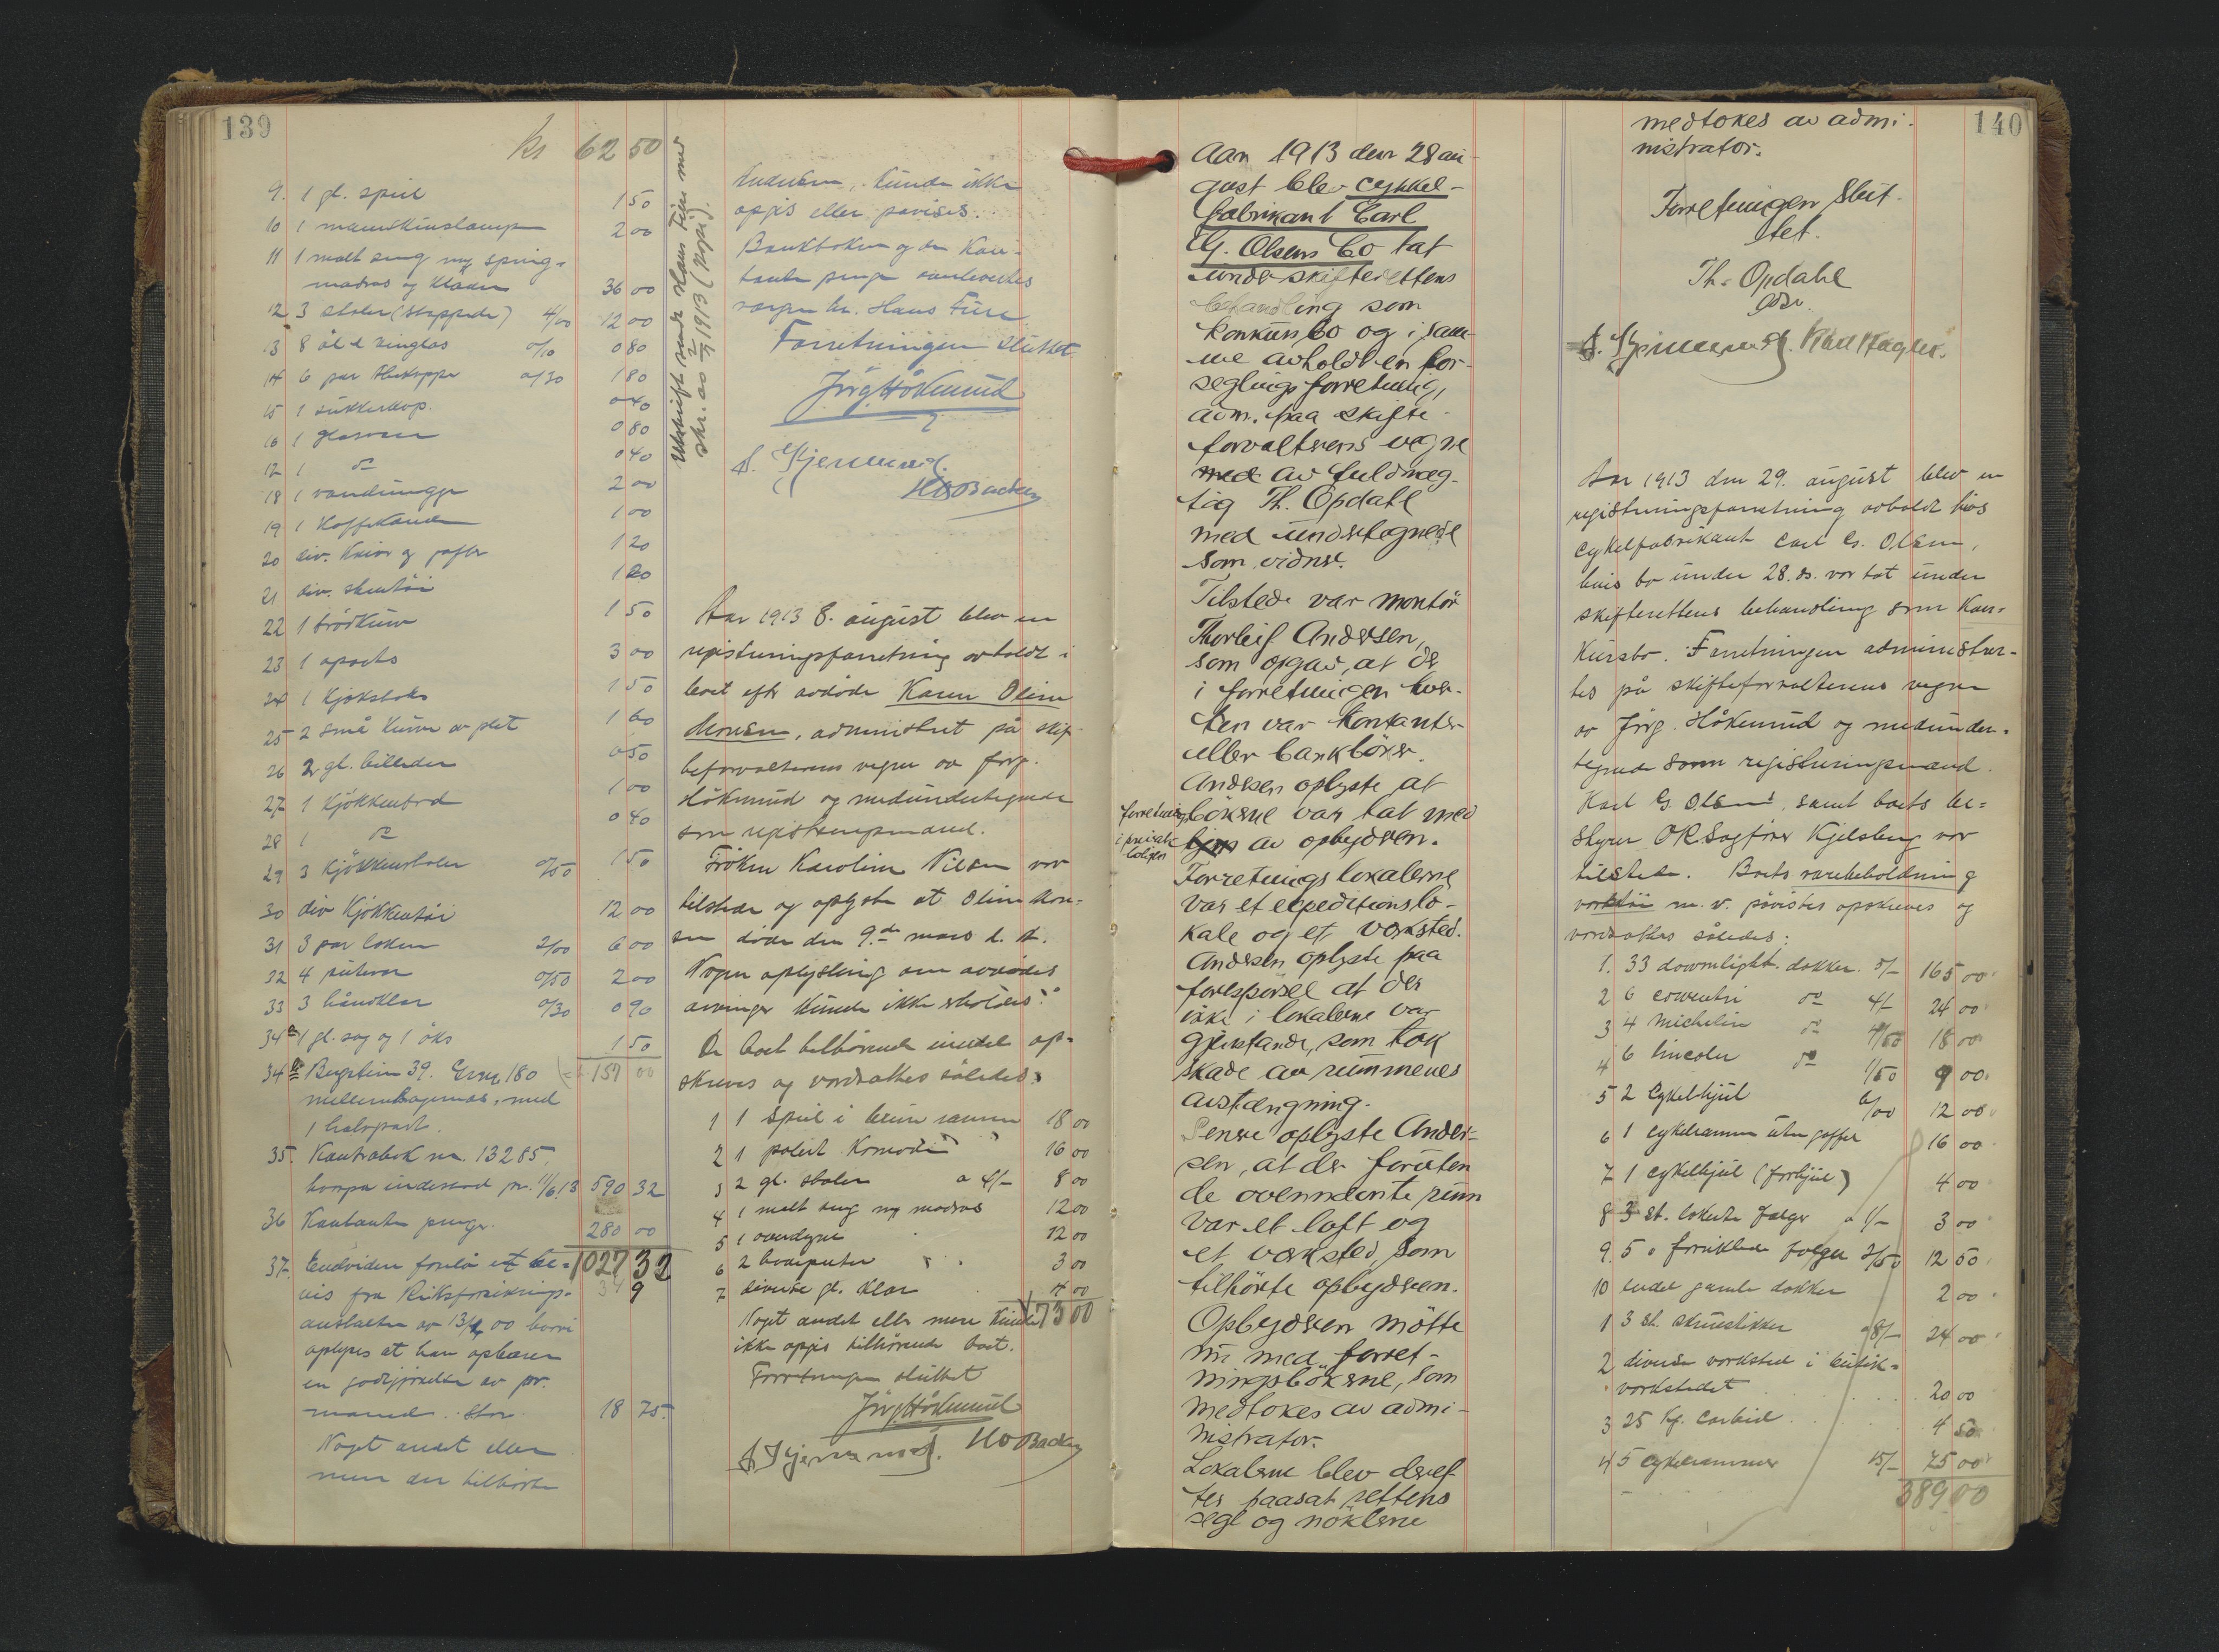 139
kr 62 50
9. 1 gl. speil 1 50
10 1 maundskinslampe 2 00
11 1 malt seng m/ spring-
madras og klæder 36 00
12 3 stoler (stoppede) 4/00 12 00
13 8 øl & vinglas 0/10 0 80
14 6 par thekopper 0/30 1 80
15 1 sukkerkop. 0 40
16 1 glasvase 0 80
17 1 do 0 40
18 1 vandmugge 2 00
19 1 kaffekande 1 00
20 div. kniver og gafler 1 20
21 div. stentøi 1 20
22 1 brødkurv 1 50
23 1 opsats 3 00
24 1 kjøkstol 1 50
25 2 små kurver av plet 1 60
26 2 gl. billeder 0 50
27 1 kjøkkenbord 1 00
28 1 do 0 40
29 3 kjøkkenstoler 0/50 1 50
30 div kjøkkentøi 12 00
31 3 par laken 2/00 6 00
32 4 putevar 0/50 2 00
33 3 håndklær 0/30 0 90
34a 1 gl. sag og 1 øks 1 50
34b Bergstien 39. 180 157 00
1 halvpart.
35. Kontrabok nr. 13285,
indestaaende pr. 11/6 13 590 32
36 Kontante penger. 280 00
37. Endvidere forelå et be- 1027 32
vis fra Riksforsikrings-
anstalten av 13/ 00 hvori
oplyses at han opbærer
en godtgjørelse av pr.
maaned. Stor. 18 75.
Noget andet eller
mere der tilhørte
Utskrift sendt Hans Fure med
skr. av 1913 (Kopi).
kunde ikke
opgis eller påvises.
Bankboken og de kon-
tante penger overlevertes
vergen hr. Hans Fure
Forretningen sluttet.
Jørg Håkmund
A. Gjermund.
HO Backer
Aar 1913 8. august blev en
registreringsforretning avholdt i
boet efter avdøde Karen Oline
Monsen, administrert på skif-
teforvalterens vegne av Jørg.
Håkmund og medundertegnede
som registreringsmænd.
Frøken Karoline Nilsen var
tilstede og oplyste at Oline Mon-
sen døde den 9.de mars d. å.
Nogen oplysning om avdødes
arvinger kunde ikke erholdes.
De boet tilhørende eiendele op-
skreves og vurdertes således:
1 1 speil i brun ramme 18 00
2 1 polert komode 16 00
3 2 gl. stoler a 4/- 8 00
4 1 malt seng m/ madras 12 00
5 1 overdyne 12 00
6 2 hodeputer 3 00
7 diverse gl. klær 4 00
Noget andet eller mere kunde 73 00
ikke opgis tilhørende boet.
Forretningen sluttet
Jørg Håkmund
A. Gjermund. HO Backer
Aar 1913 den 28 au-
gust blev cykkel-
fabrikant Carl
G. Olsens Bo tat
under skifterettens
behandling som
konkursbo og i sam-
me avholdt en for-
seglingsforretning,
adm. paa skifte-
forvalterens vegne
med av fuldmæg-
tig Th. Opdahl
med undertegnede
som vidner.
Tilstede var montör
Thorleif Andersen,
som opgav, at der
i forretningen hver-
ken var kontanter
eller bankbøker.
Andersen oplyste at
forretningsbökerne var tat med
i private bolig
hjem av opbyderen.
Forretningslokalerne
var et expeditionslo-
kale og et verksted.
Andersen oplyste paa
forespörsel at der
ikke i lokalerne var
gjenstande, som tok
skade av rummenes
avstængning.
Senere oplyste Ander-
sen, at der foruten
de ovennævnte rum
var et loft og
et verksted, som
tilhörte opbyderen.
Opbyderen mötte
nu med forret-
ningsbökerne, som
medtokes av admi-
nistrator.
Lokalerne blev deref-
ter paasat rettens
segl og nöklerne
140
medtokes av admi-
nistrator.
Forretningen slut-
tet.
Th. Opdahl
A. Gjermund. Karl Hagler.
Aar 1913 den 29. august blev en
registreringsforretning avholdt hos
cykelfabrikant Carl G. Olsen,
hvis bo under 28. ds. var tat under
skifterettens behandling som kon-
kursbo. Forretningen administrer-
tes på skifteforvalterens vegne
av Jørg. Håkmund og medunder-
tegnede som registreringsmænd.
Karl G. Olsen samt boets be-
styrer ORSagfører Kjelsberg var
tilstede. Boets varebeholdning
verktøi m. v. påvistes opskreves og
vurdertes således:
1. 33 dowenlight. dækker. 5/- 165 00
2 6 coventri do 4/- 24 00
3 4 Michelin do 4/50 18 00
4 6 lincoln do 1/50 9 00
5 2 cykelhjul 6/00 12 00
6 1 cykelramme uten gaffel 16 00
7 1 cykelhjul (forhjul) 4 00
8 3 st. lakerte fælger a 1/- 3 00
9. 5 " forniklede fælger 2/50 12 50
10 endel gamle dækker 2 00
1 3 st. skruestikker a 8/- 24 00
2 diverse verksted i butik-
verkstedet 20 00
3 25 kg. carbid 4 50
4 5 cykelrammer 15/- 75 00
389 00